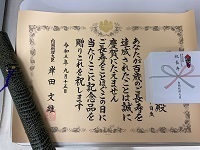 殿
あなたが百歳のご長寿を
達成されたことは誠に
慶賀にたえません
ここに
ご長寿をことほぎこの日に
当たりここに記念品を
贈りこれを祝します
令和五年九月十五日
内閣総理大臣 岸田文雄